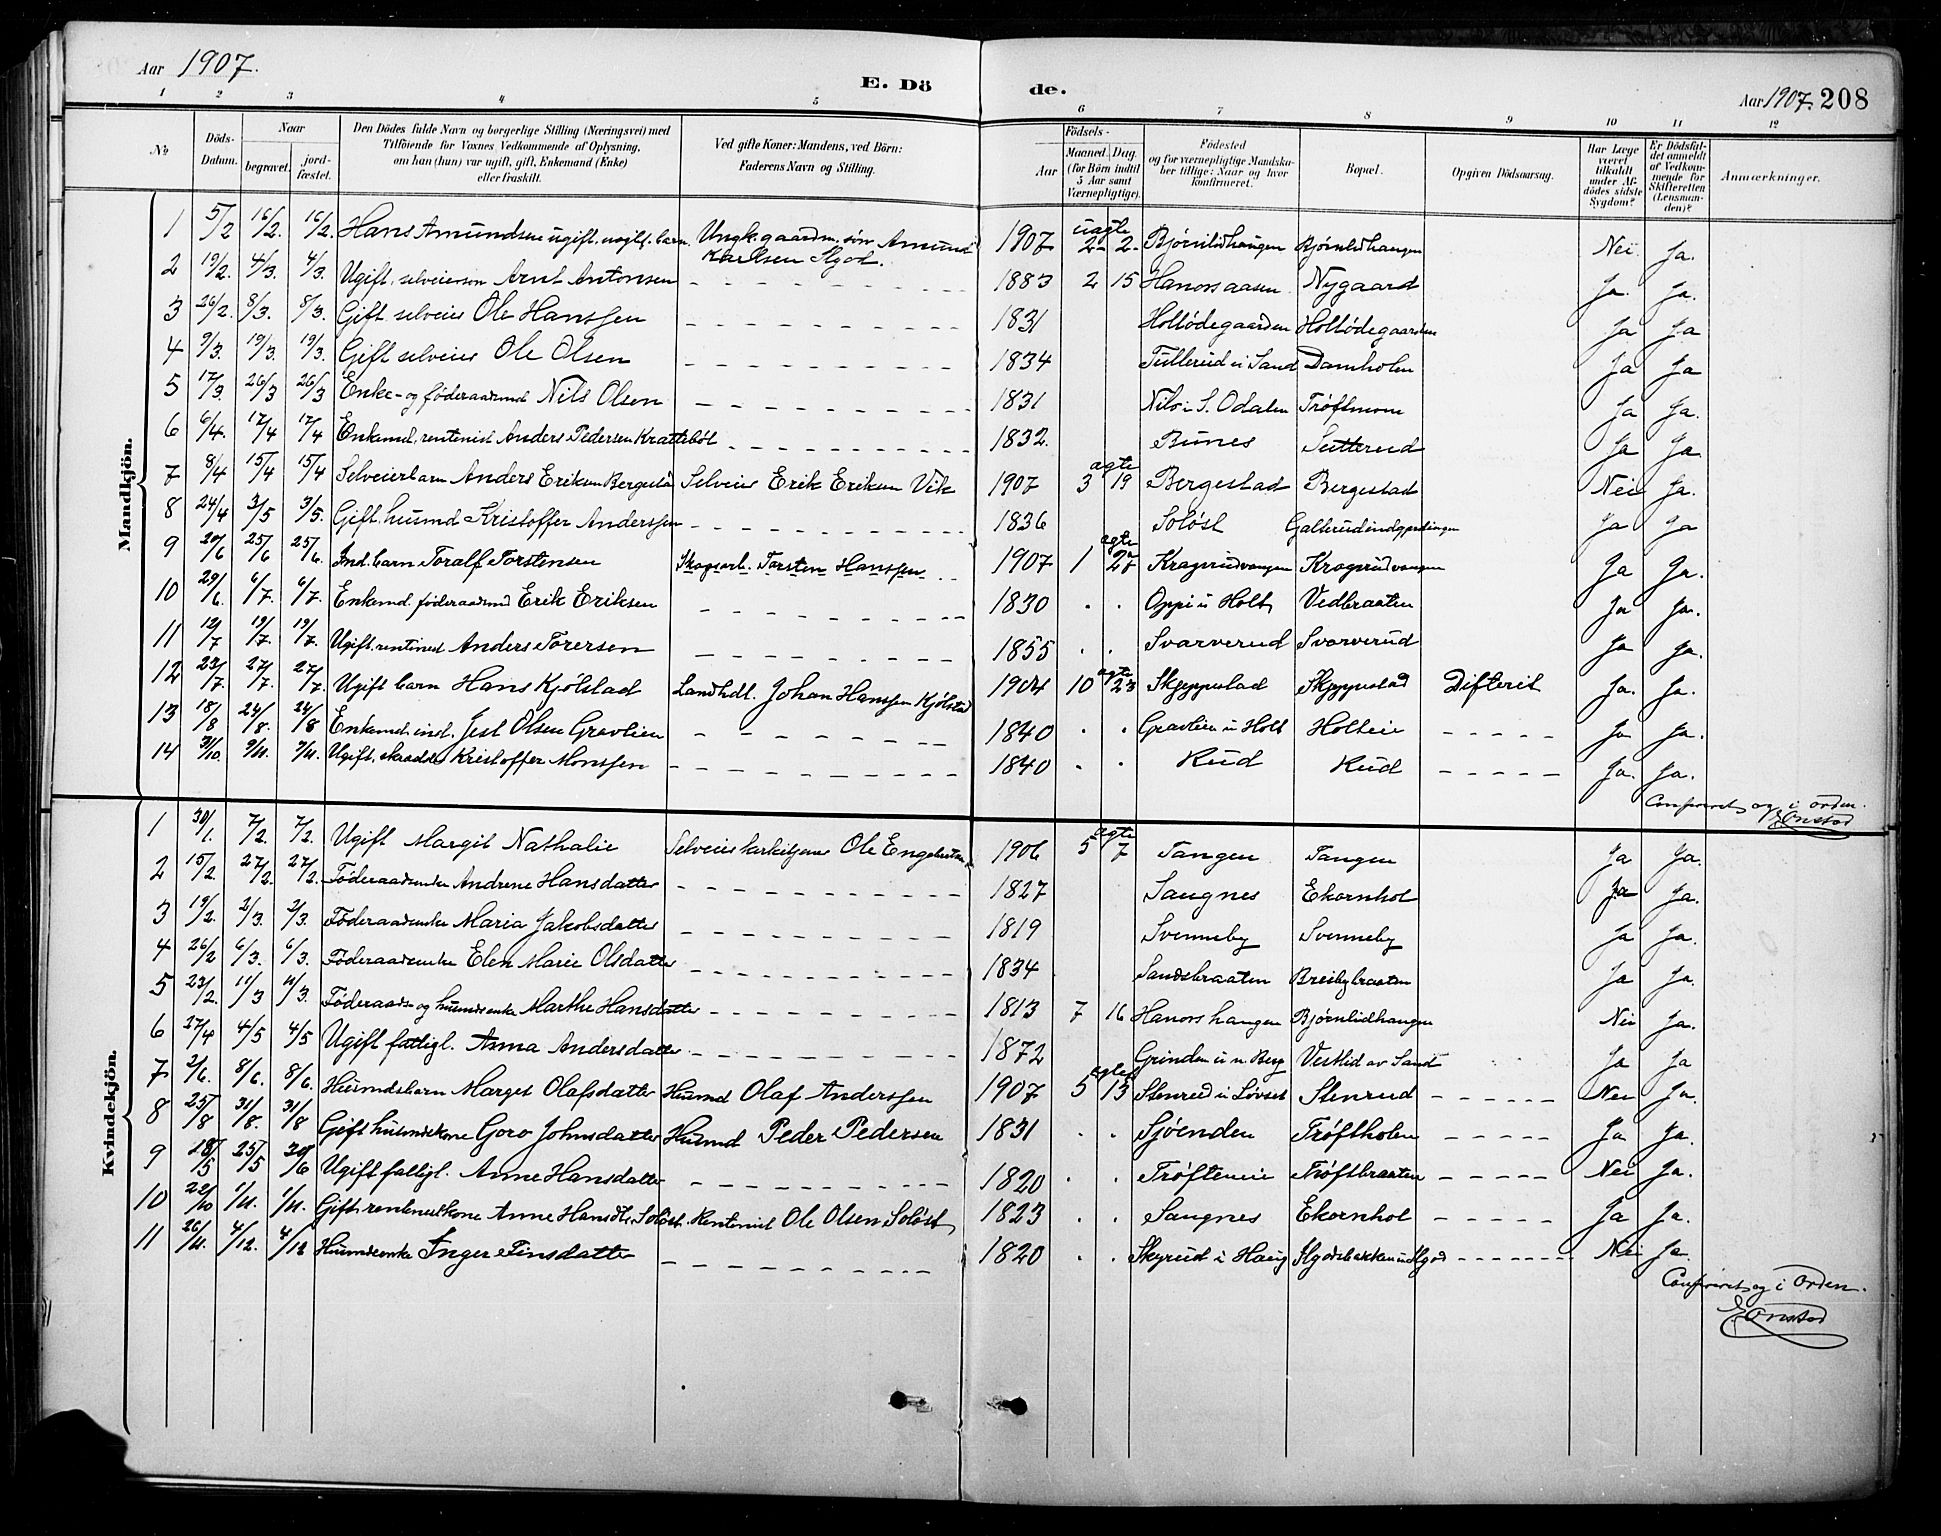 Aar 1907.
E. Dö de.
Aar 1907. 208
1 2 3 4 5 6 7 8 9 10 11 12
No
Döds-Datum.
Naar begravet. jord-fæstet.
Den Dödes fulde Navn og borgerlige Stilling (Næringsvei) med Tilföiende for Voxnes Vedkommende af Oplysning, om han (hun) var ugift, gift, Enkemand (Enke) eller fraskilt.
Ved gifte Koner: Mandens, ved Börn: Faderens Navn og Stilling.
Födsels- Aar Maaned. Dag. (for Börn indtil 5 Aar samt Værnepligtige).
Födested og for værnepligtige Mandskaber tillige: Naar og hvor konfirmeret.
Bopæl.
Opgiven Dödsaarsag.
Har Læge været tilkaldt under Afdödes sidste Sygdom?
Er Dödsfaldet anmeldt af Vedkommende for Skifteretten (Lensmanden)?
Anmærkninger.
Mandkjön.
1 5/2 16/2. 16/2. Hans Amundsen ugift. barn. Ungk. gaardm. søn Amund 1907 uægte 2 2 Bjørnlidhaugen Bjørnlidhaugen Nei. Ja.
2 19/2. 4/3. 4/3. Ugift. selveiersøn Arnt Antonsen 1883 2 15 Hanorsaasen Nygaard Ja. Ja.
3 26/2. 8/3. 8/3. Gift selveier Ole Hanssen 1831 Holtødegaarden Holtødegaarden Ja Ja
4 9/3. 19/3. 19/3. Gift selveier Ole Olsen 1834 Tullerud i Sand Damholen Ja Ja
5 17/3. 26/3 26/3 Enke- og føderaadsmd Nils Olsen 1831 i S. Odalen Trøftmoen Ja Ja.
6 6/4. 17/4 17/4 Enkemd. rentenist Anders Pedersen Krattebøl 1832. Bunes Sutterud Ja Ja
7 8/4 15/4 15/4 Selveierbarn Anders Eriksen Bergestad Selveier Erik Eriksen Vik 1907 ægte 3 19 Bergestad Bergestad Nei Ja.
8 24/4 3/5 3/5. Gift. husmd Kristoffer Anderssen 1836 Soløst Ja Ja
9 20/6 25/6 25/6. Ind. barn Toralf Torstensen Skogsarb. Torsten Hanssen 1907 ægte 1 Kragerudvangen Kragerudvangen Ja Ja.
10 29/6. 6/7. 6/7. Enkemd. føderaadsmd Erik Eriksen 1830 Oppi u Holt, Vedbraaten Ja Ja.
11 12/7 19/7. 19/7. Ugift. rentenist Anders Torersen 1855 Svarverud Svarverud Ja Ja.
12 23/7. 27/7. 27/7. Ugift barn Hans Kjølstad Landhdl. Johan Hanssen Kjølstad 1904 ægte 10 23 Skjeppestad Skjeppestad Difterit Ja. Ja.
13 18/8 24/8. 24/8 Enkemd. ind. Jest Olsen Gravlien 1840 Gravlien u Holt Holteie Ja Ja.
14 31/10. 9/11. 9/11. Ugift. skrædder Kristoffer Monssen 1840 Rud Rud Ja. Ja.
Confereret og i orden.
E Onstad
Kvindekjön.
1 30/1. 7/2. 7/2. Ugift Margit Nathalie Ole 1906 ægte 5 7 Tangen Tangen Ja Ja.
2 15/2. 27/2. 27/2. Føderaadsenke Andrene Hansdatter 1827 Saugnes Ekornhol Ja Ja.
3 19/2. 2/3. 2/3. Føderaadsenke Maria Jakobsdatter 1819 Svenneby Svenneby Ja Ja.
4 26/2 6/3. 6/3. Føderaadsenke Elen Marie Olsdatter 1834 Sandsbraaten Breibybraaten Ja Ja.
5 23/2. 11/3 11/3. Føderaads- og husmdsenke Marthe Hansdatter 1813 7 16 Hanorshaugen Bjørnlidhaugen Nei Ja.
6 27/4 4/5 4/5 Ugift fattigl. Anna Andersdatter 1872 Grinden u n Berg Vestlid av Sand Ja Ja
7 2/6. 8/6. 8/6. Husmdsbarn Marget Olafsdatter Husmd Olaf Anderssen 1907 ægte 5 13 Stenrud u Løvset Stenrud Nei Ja.
8 25/8 31/8. 31/8 Gift husmdskone Goro Johnsdatter Husmd Peder Pedersen 1831 Sjøenden Trøftholen Ja Ja.
9 18/5 25/5 20/6 Ugift fattigl. Anne Hansdatter 1820 Trøfteneie Trøftbraaten Nei Ja.
10 22/10 1/11. 1/11. Gift. rentenistkone Anne Hansdtr. Soløst. Rentenist Ole Olsen Soløst, 1823 Saugnes Ekornhol Ja Ja.
11 26/11. 4/12. 4/12 Husmdsenke Inger Finsdatter 1820 Skyrud i Haug Nei Ja.
Confereret og i Orden.
E Onstad